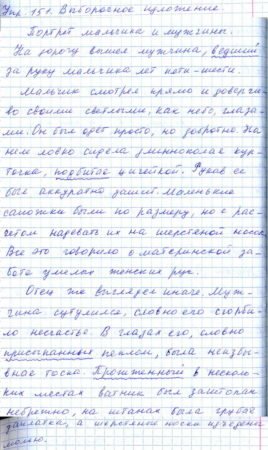 Упр. 151. Выборочное изложение.
Портрет мальчика и мужчины.
На дорогу вышел мужчина, ведший
за руку мальчика лет пяти-шести.
Мальчик смотрел прямо и доверчи-
во своими светлыми, как небо, глаза-
ми. Он был одет просто, но добротно. На
нем ловко сидела длиннополая кур-
точка, подбитая цигейкой. Рукав ее
был аккуратно зашит. Маленькие
сапожки были по размеру, но с рас-
чётом надевать их на шерстяной носок.
Все это говорило о материнской за-
боте умелых женских рук.
Отец же выглядел иначе. Муж-
чина сутулился, словно его сгорби-
ло несчастье. В глазах его, словно
присыпанных пеплом, была неизбы-
вная тоска. Прожженный в несколь-
ких местах ватник был заштопан
небрежно, на штанах была грубая
заплатка, а шерстяные носки изъедены
молью.